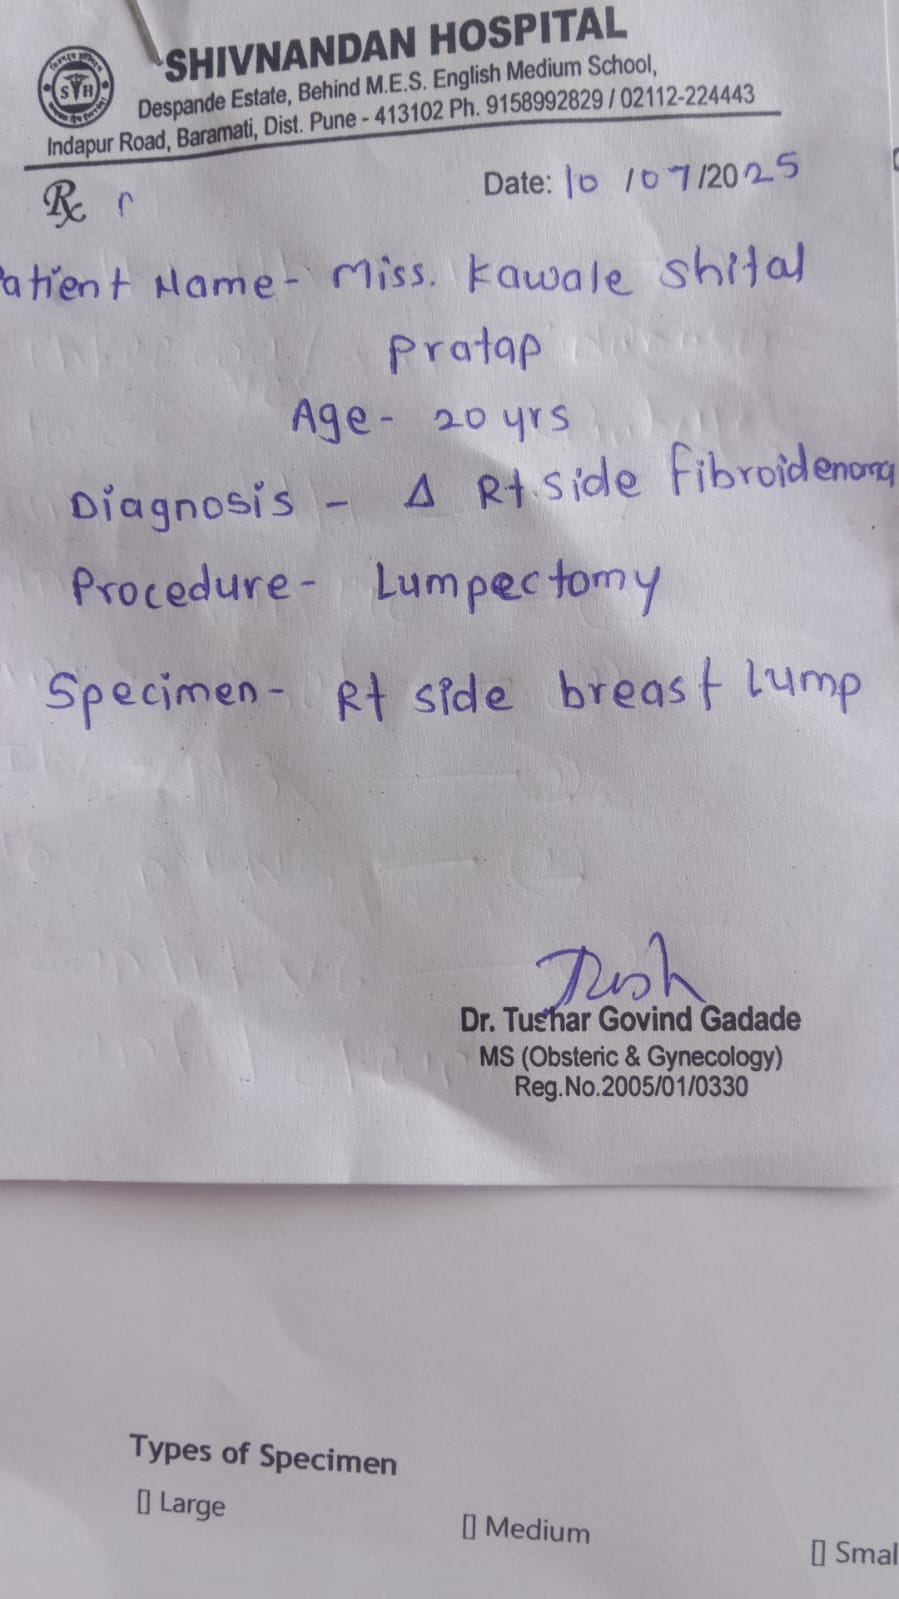 SHIVNANDAN HOSPITAL
Despande Estate, Behind M.E.S. English Medium School,
Indapur Road, Baramati, Dist. Pune - 413102 Ph. 9158992829 / 02112-224443
SH
Rx Date: 10 /07/2025
Patient Name - Miss. Kawale Shital
Pratap
Age - 20 yrs
Diagnosis - Δ Rt. side Fibroidenoma
Procedure - Lumpectomy
Specimen - Rt side breast lump
Tush
Dr. Tushar Govind Gadade
MS (Obsteric & Gynecology)
Reg.No.2005/01/0330
Types of Specimen
[] Large
[] Medium
[] Smal